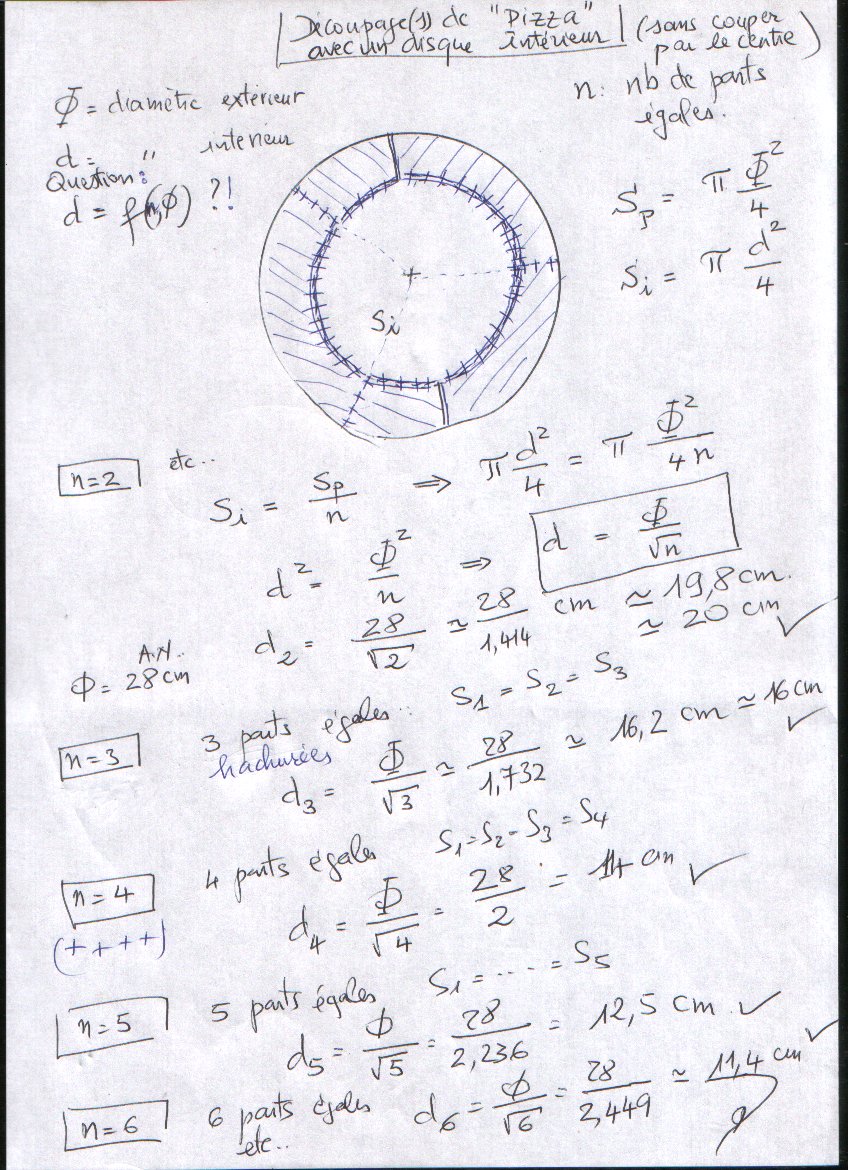 Découpage(s) de "Pizza" (sans couper
avec un disque intérieur par le centre)
Φ = diamètre extérieur
n: nb de parts
égales.
d = " intérieur
Question:
d = f(n,Φ) ?!
Sp = π Φ²/4
Si = π d²/4
Si
n=2 etc...
Si = Sp/n ⇒ π d²/4 = π Φ²/4n
d² = Φ²/n ⇒ d = Φ/√n
d₂ = 28/√2 ≃ 28/1,414 cm ≃ 19,8 cm.
≃ 20 cm ✓
A.N.
Φ = 28 cm
n=3 3 parts égales.. S₁ = S₂ = S₃
hachurées
d₃ = Φ/√3 ≃ 28/1,732 ≃ 16,2 cm ≃ 16 cm ✓
n=4 4 parts égales S₁=S₂-S₃=S₄
(++++)
d₄ = Φ/√4 = 28/2 = 14 cm ✓
n=5 5 parts égales S₁ = ---- = S₅
d₅ = Φ/√5 = 28/2,236 = 12,5 cm. ✓
n=6 6 parts égales d₆ = Φ/√6 = 28/2,449 ≃ 11,4 cm ✓
etc..